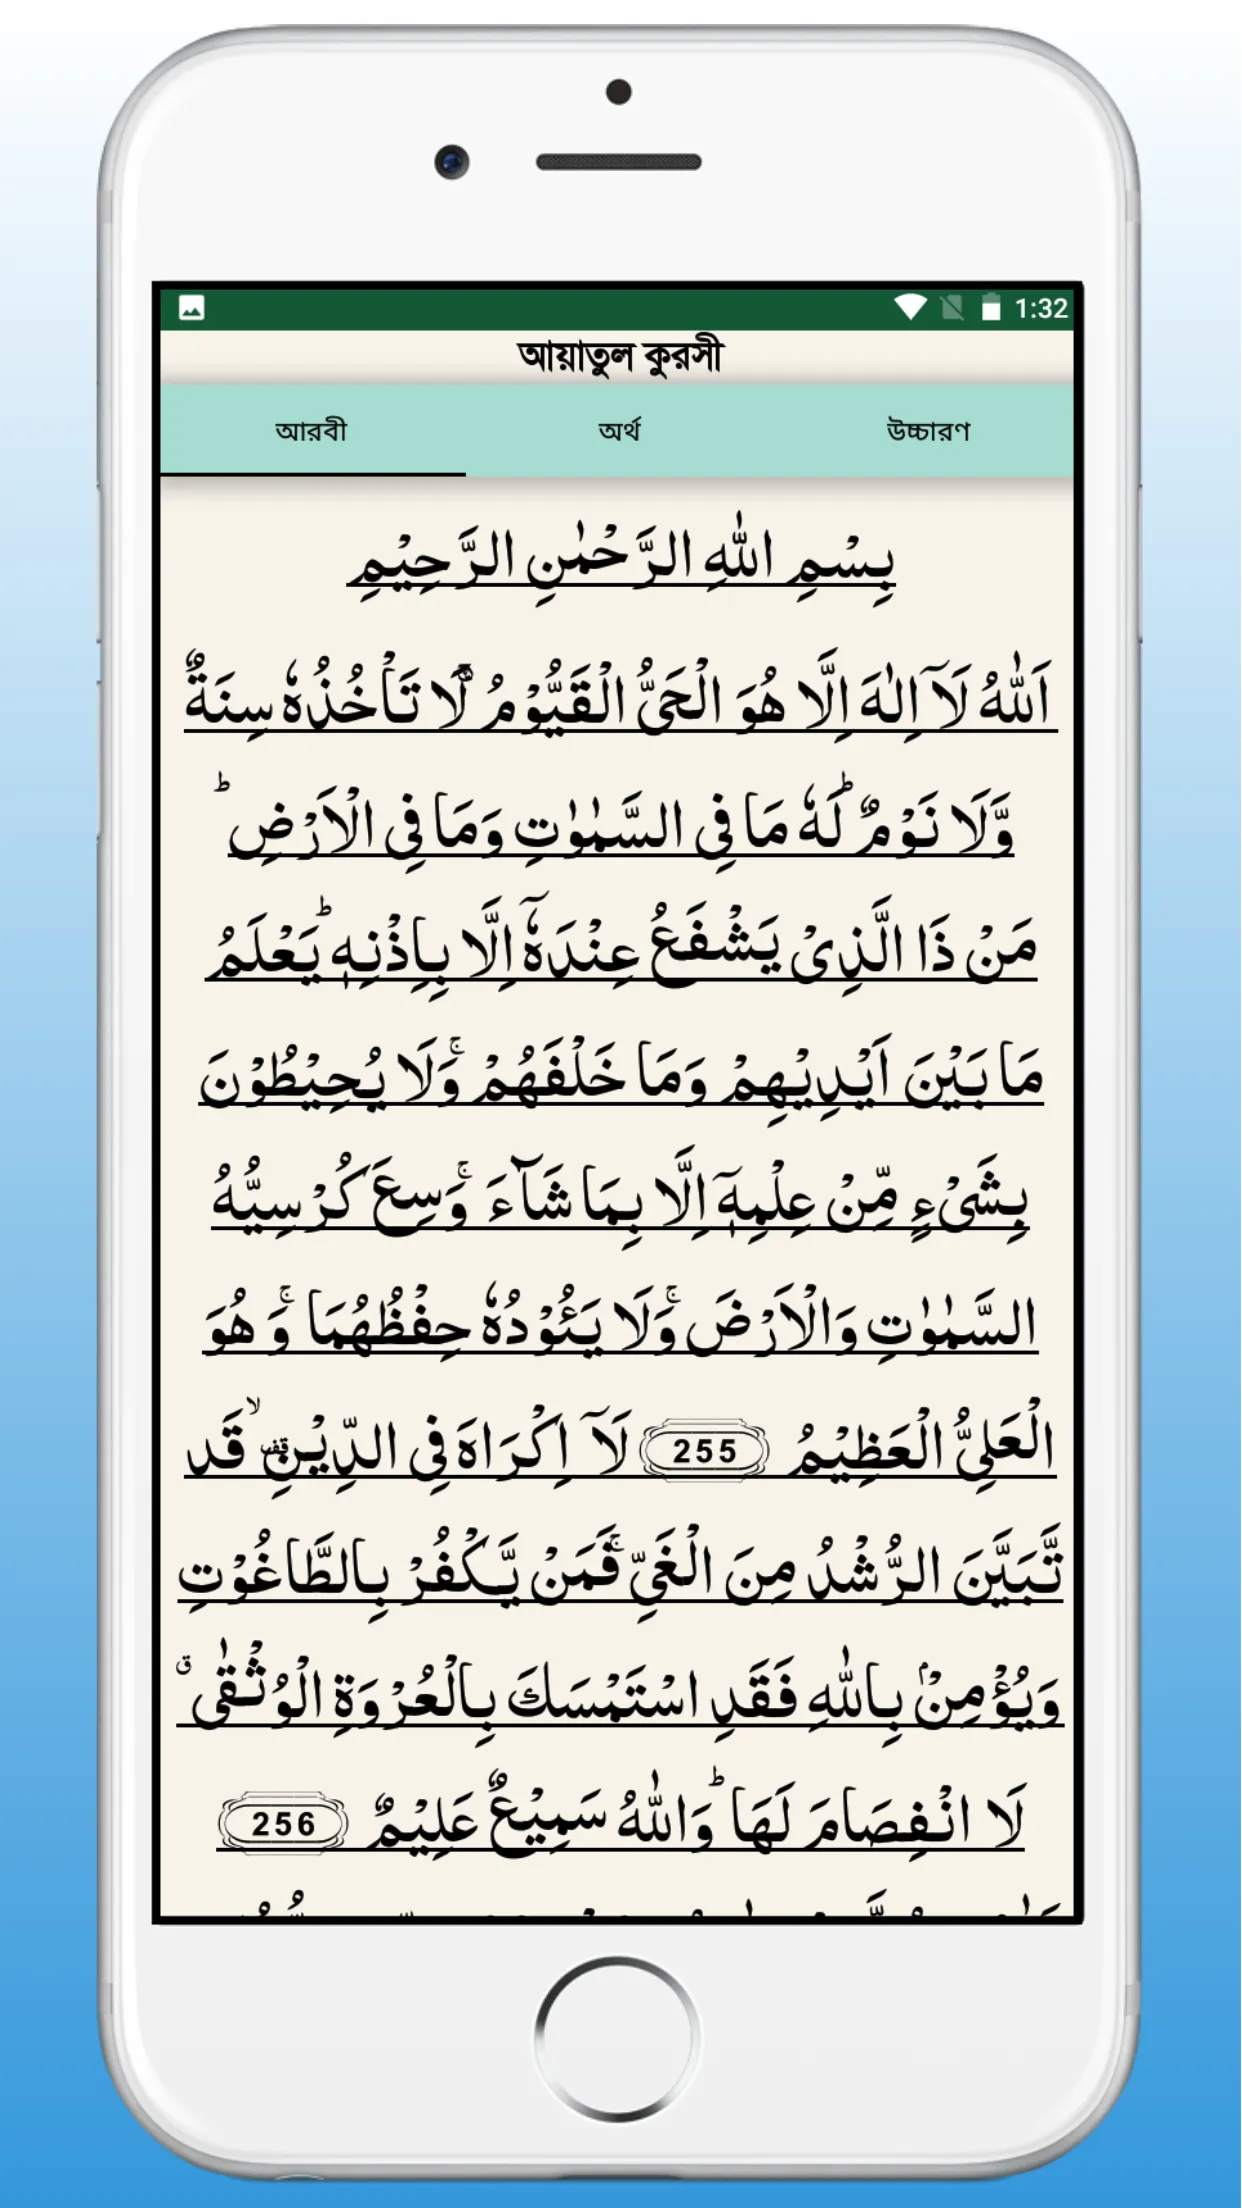 1:32
আয়াতুল কুরসী
আরবী অর্থ উচ্চারণ
بِسْمِ اللّٰهِ الرَّحْمٰنِ الرَّحِيْمِ
اَللّٰهُ لَآ اِلٰهَ اِلَّا هُوَ الْحَىُّ الْقَيُّوْمُ ۬ لَا تَاْخُذُهٗ سِنَةٌ
وَّلَا نَوْمٌ ؕ لَهٗ مَا فِى السَّمٰوٰتِ وَمَا فِى الْاَرْضِ ؕ
مَنْ ذَا الَّذِىْ يَشْفَعُ عِنْدَهٗۤ اِلَّا بِاِذْنِهٖ ؕ يَعْلَمُ
مَا بَيْنَ اَيْدِيْهِمْ وَمَا خَلْفَهُمْ ۚ وَلَا يُحِيْطُوْنَ
بِشَىْءٍ مِّنْ عِلْمِهٖۤ اِلَّا بِمَا شَآءَ ۚ وَسِعَ كُرْسِيُّهُ
السَّمٰوٰتِ وَالْاَرْضَ ۚ وَلَا يَـُٔوْدُهٗ حِفْظُهُمَا ۚ وَ هُوَ
الْعَلِىُّ الْعَظِيْمُ 255 لَآ اِكْرَاهَ فِى الدِّيْنِ ۟ۙ قَد
تَّبَيَّنَ الرُّشْدُ مِنَ الْغَىِّ ۚ فَمَنْ يَّكْفُرْ بِالطَّاغُوْتِ
وَيُؤْمِنْۢ بِاللّٰهِ فَقَدِ اسْتَمْسَكَ بِالْعُرْوَةِ الْوُثْقٰى ۗ
لَا انْفِصَامَ لَهَا ؕ وَاللّٰهُ سَمِيْعٌ عَلِيْمٌ 256